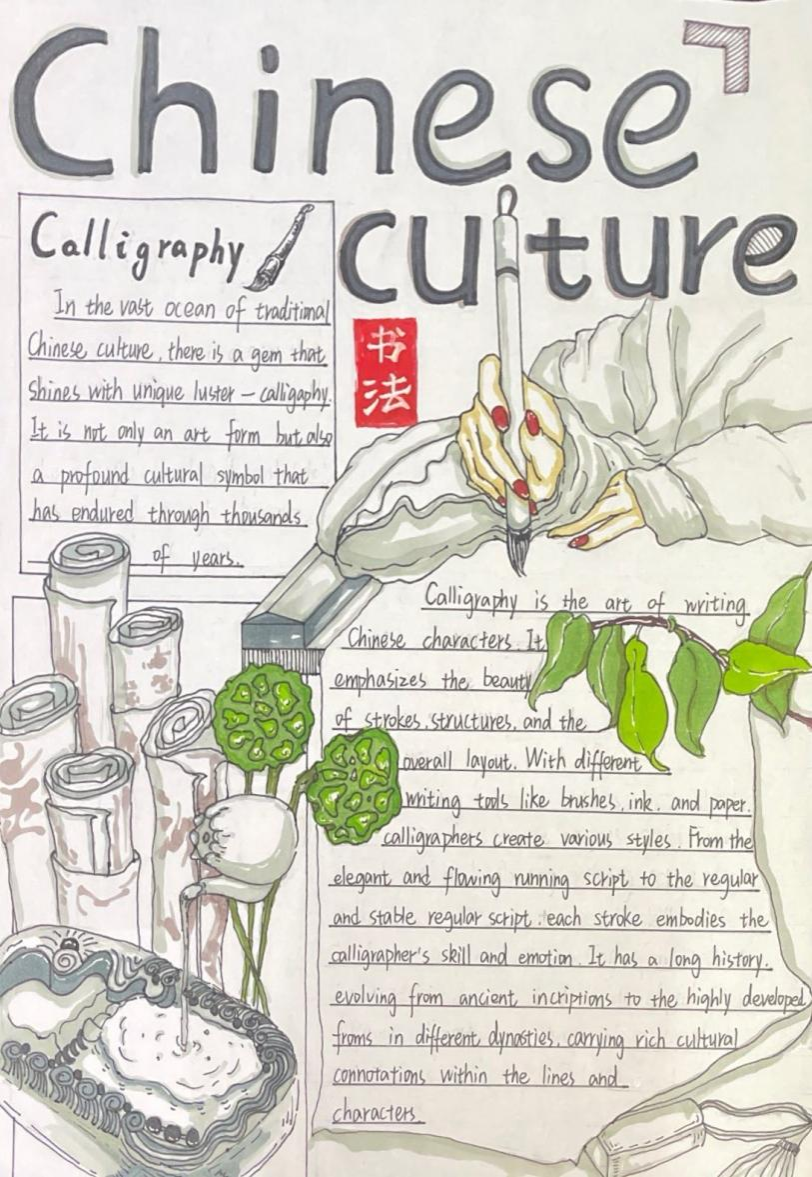 Chinese
culture
Calligraphy
In the vast ocean of traditional
Chinese culture, there is a gem that
shines with unique luster – calligaphy.
It is not only an art form but also
a profound cultural symbol that
has endured through thousands
of years.
书
法
Calligraphy is the art of writing
Chinese characters. It
emphasizes the beauty
of strokes, structures, and the
overall layout. With different
writing tools like brushes, ink, and paper.
calligraphers create various styles. From the
elegant and flowing running script to the regular
and stable regular script, each stroke embodies the
calligrapher's skill and emotion. It has a long history.
evolving from ancient incriptions to the highly developed
froms in different dynasties, carrying rich cultural
connotations within the lines and
characters.